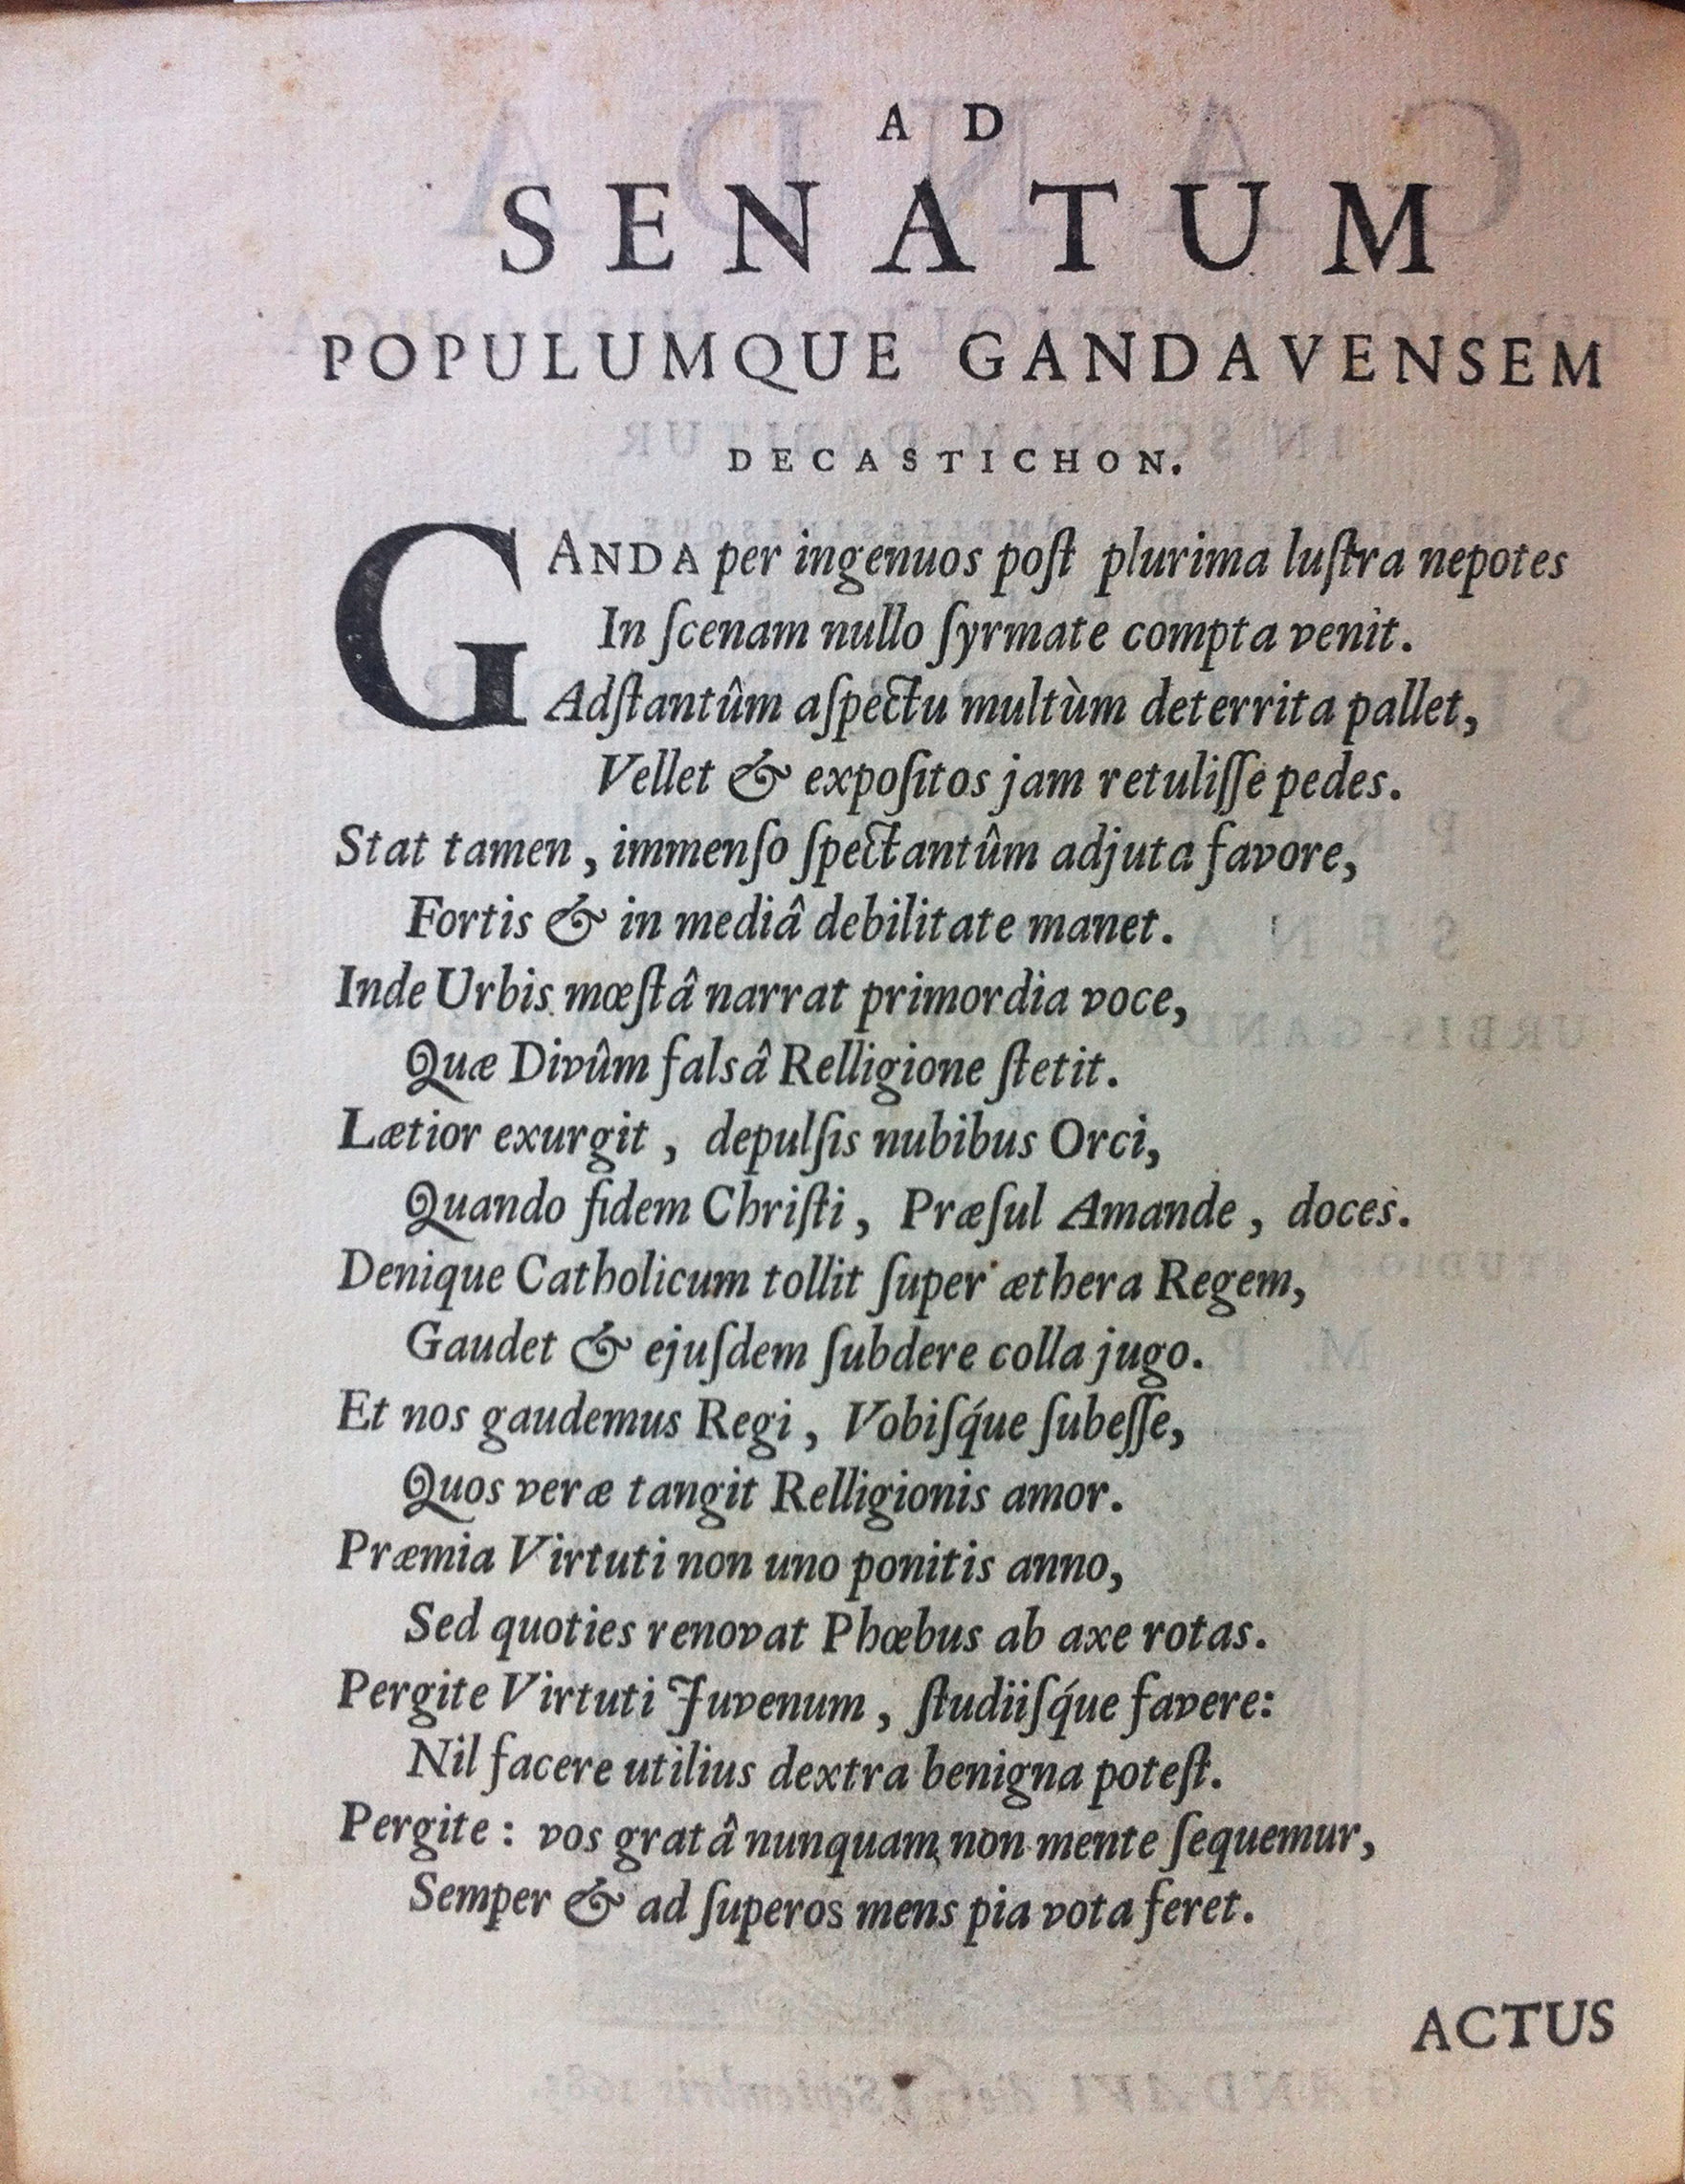 AD
SENATUM
POPULUMQUE GANDAVENSEM
DECASTICHON.
GANDA per ingenuos poſt plurima luſtra nepotes
In ſcenam nullo ſyrmate compta venit.
Adſtantûm aſpectu multùm deterrita pallet,
Vellet & expoſitos jam retuliſſe pedes.
Stat tamen, immenſo ſpectantûm adjuta favore,
Fortis & in mediâ debilitate manet.
Inde Urbis mœſtâ narrat primordia voce,
Quæ Divûm falsâ Relligione ſtetit.
Lætior exurgit, depulſis nubibus Orci,
Quando fidem Chriſti, Præſul Amande, doces.
Denique Catholicum tollit ſuper æthera Regem,
Gaudet & ejuſdem ſubdere colla jugo.
Et nos gaudemus Regi, Vobiſq́ue ſubeſſe,
Quos veræ tangit Relligionis amor.
Præmia Virtuti non uno ponitis anno,
Sed quoties renovat Phœbus ab axe rotas.
Pergite Virtuti Juvenum, ſtudiiſq́ue favere:
Nil facere utilius dextra benigna poteſt.
Pergite: vos gratâ nunquam non mente ſequemur,
Semper & ad ſuperos mens pia vota feret.
ACTUS